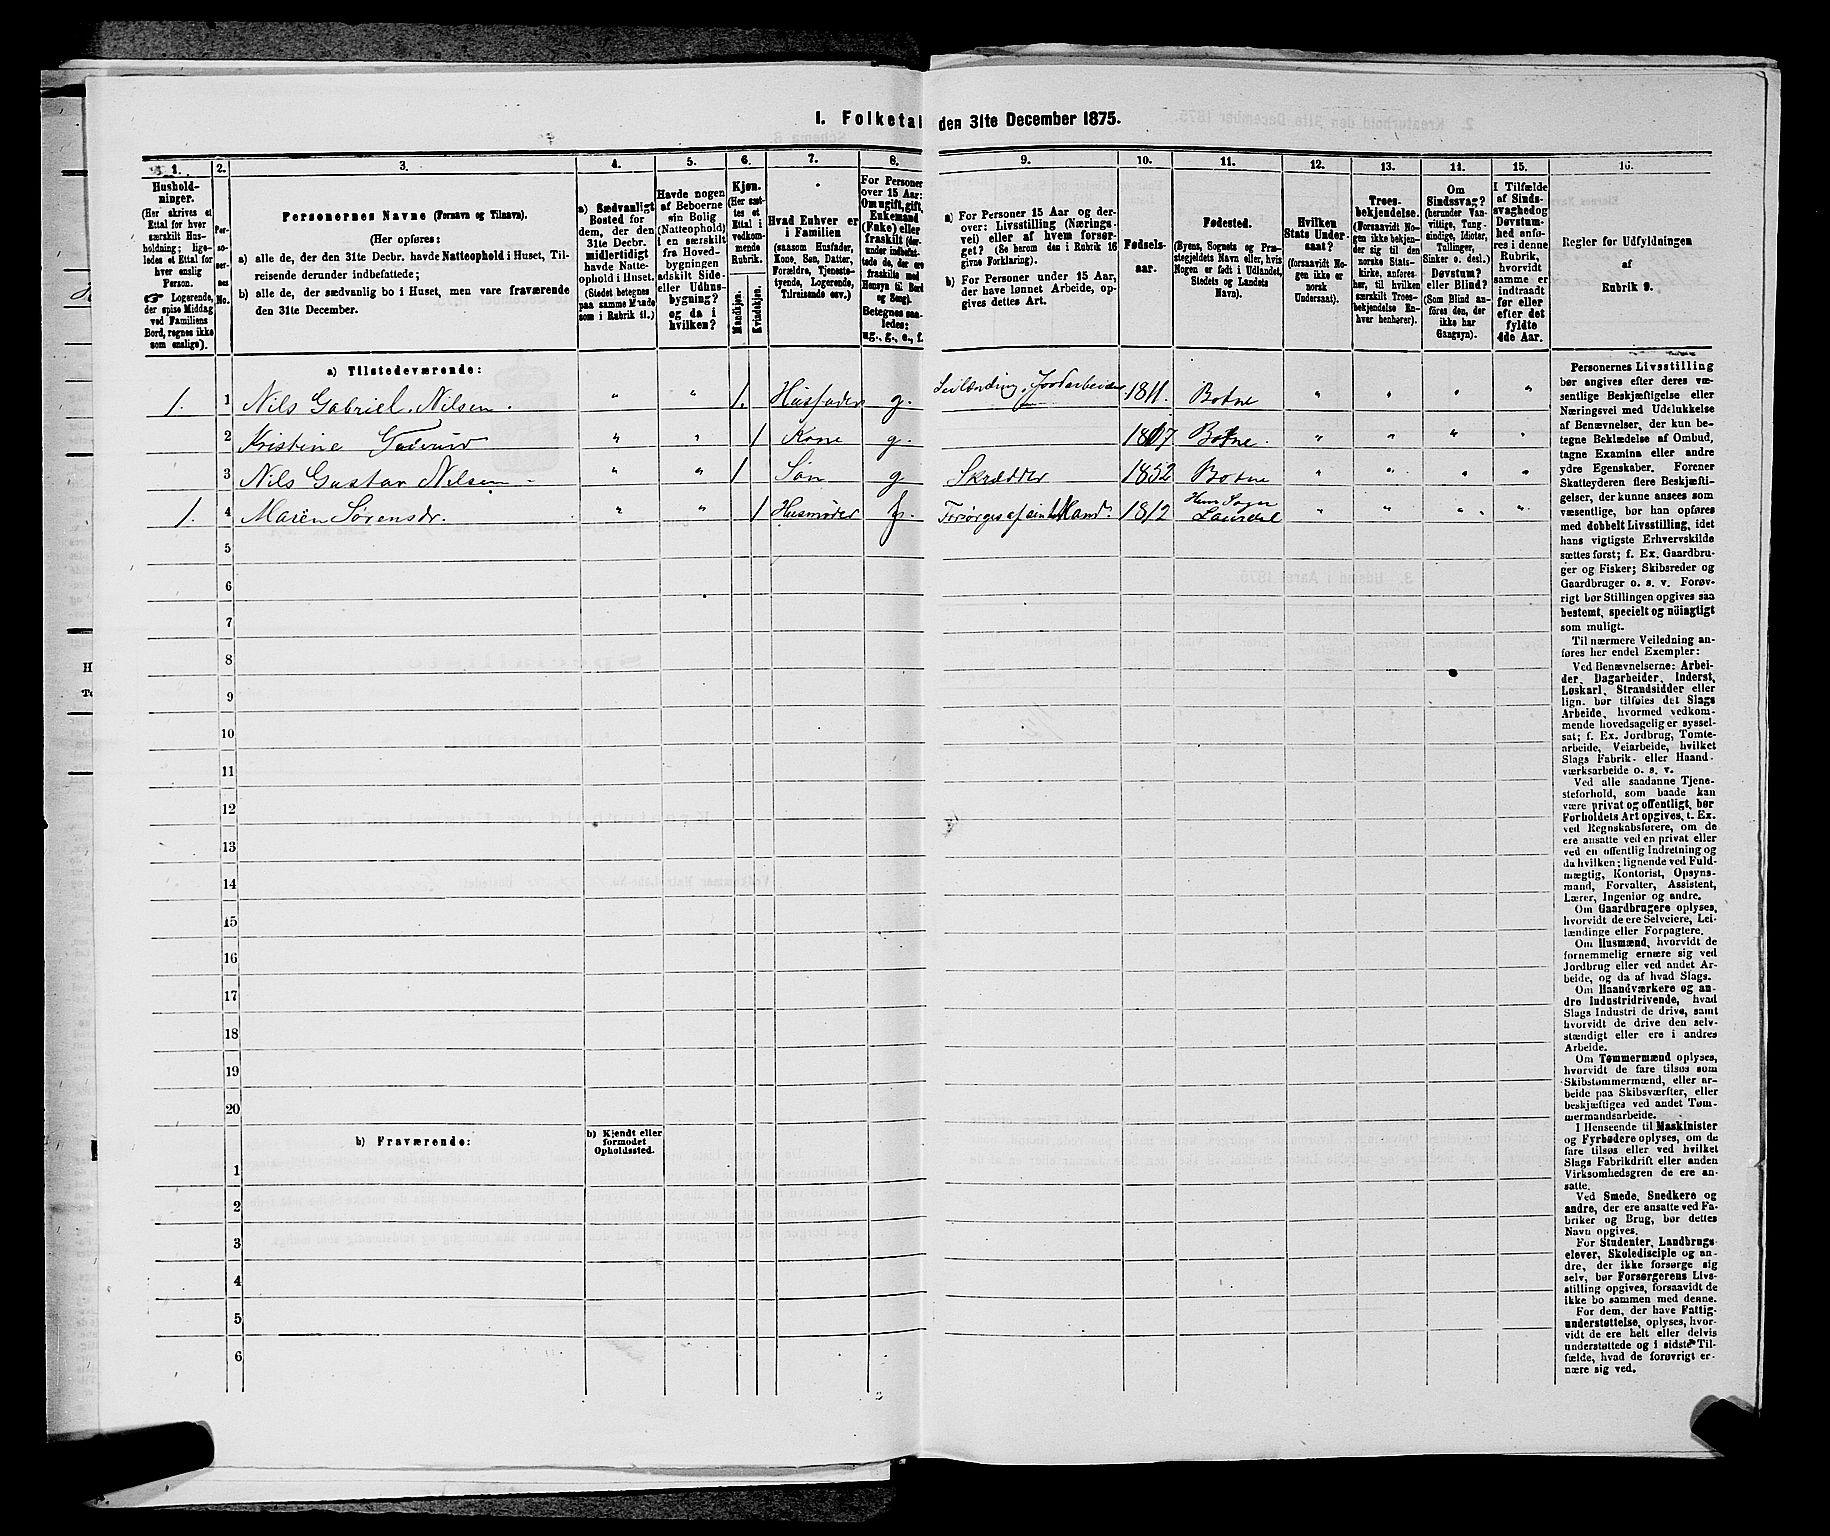 I. Folketal den 31te December 1875.
1.
Hushold-
ninger.
(Her skrives et
Ettal for hver
særskilt Hus-
holdning; lige-
ledes et Ettal for
hver enslig
Person.
☞ Logerende,
der spise Middag
ved Familiens
Bord, regnes ikke
som enslige).
2.
Per-
so-
ner-
nes
No.
3.
Personernes Navne (Fornavn og Tilnavn).
(Her opføres:
a) alle de, der den 31te Decbr. havde Natteophold i Huset, Til-
reisende derunder indbefattede;
b) alle de, der sædvanlig bo i Huset, men vare fraværende
den 31te December.
4.
a) Sædvanligt
Bosted for
dem, der den
31te Decbr.
midlertidigt
havde Natte-
ophold i Huset.
(Stedet betegnes
paa samme Maade
som i Rubrik 11.)
5.
Havde nogen
af Beboerne
sin Bolig
(Natteophold)
i en særskilt
fra Hoved-
bygningen
adskilt Side-
eller Udhus-
bygning?
og da i
hvilken?
6.
Kjøn.
(Her sæt-
tes et
Ettal i
vedkom-
mende
Rubrik.
Mandkjøn.
Kvindekjøn.
7.
Hvad Enhver er
i Familien
(saasom Husfader,
Kone, Søn, Datter,
Forældre, Tjeneste-
tyende, Logerende,
Tilreisende osv.)
8.
For Personer
over 15 Aar:
Om ugift, gift,
Enkemand
(Enke) eller
fraskilt (der-
under indbefat-
tede de, der ere
fraskilte med
Hensyn til Bord
og Seng).
Betegnes saa-
ledes:
ug., g., e., f.
9.
a) For Personer 15 Aar og der-
over: Livsstilling (Nærings-
vei) eller af hvem forsør-
get? (Se herom den i Rubrik 16
givne Forklaring).
b) For Personer under 15 Aar,
der have lønnet Arbeide, op-
gives dettes Art.
10.
Fødsels-
aar.
11.
Fødested.
(Byens, Sognets og Præ-
stegjeldets Navn eller, hvis
Nogen er født i Udlandet,
Stedets og Landets
Navn).
12.
Hvilken
Stats Under-
saat?
(forsaavidt No-
gen ikke er
norsk
Undersaat).
13.
Troes-
bekjendelse.
(Forsaavidt No-
gen ikke bekjen-
der sig til den
norske Stats-
kirke, anføres
her, til hvilken
særskilt Troes-
bekjendelse En-
hver henhører).
14.
Om
Sindssvag?
(herunder Van-
vittige, Tung-
sindige, Idioter,
Tullinger,
Sinker o. desl.)
Døvstum?
eller Blind?
(Som Blind an-
føres den, der
ikke har
Gangsyn).
15.
I Tilfælde
af Sinds-
svaghed og
Døvstum-
hed anfø-
res i denne
Rubrik,
hvorvidt
samme er
indtraadt
før eller
efter det
fyldte
4de Aar.
16.
Regler for Udfyldningen
af
Rubrik 9.
a) Tilstedeværende:
1. 1 Nils Gabriel Nilsen. " " 1. Husfader g. Leilænding, Jordarbeider 1811. Botne " " " "
2 Kristine " " 1 Kone g. 1817 Botne. " " " "
3 Nils Gustav Nilsen " " 1 Søn g Skrædder 1852 Botne " " " "
1. 4 Maren Sørensdr. " " 1 Husmoder f. Forsørges af sin Mand. 1812 Hem Sogn
Laurdal " " " "
5
6
7
8
9
10
11
12
13
14
15
16
17
18
19
20
b) Fraværende:
b) Kjendt eller
formodet
Opholdssted.
1
2
3
4
5
6
Personernes Livsstilling
bør angives efter deres væ-
sentlige Beskjæftigelse eller
Næringsvei med Udelukkelse
af Benævnelser, der kun be-
tegne Beklædelse af Ombud,
tagne Examina eller andre
ydre Egenskaber. Forener
Skatteyderen flere Beskjæfti-
gelser, der kunne ansees som
væsentlige, bør han opføres
med dobbelt Livsstilling, idet
hans vigtigste Erhvervskilde
sættes først; f. Ex. Gaardbru-
ger og Fisker; Skibsreder og
Gaardbruger o. s. v. Forøv-
rigt bør Stillingen opgives saa
bestemt, specielt og nöiagtigt
som muligt.
Til nærmere Veiledning an-
føres her endel Exempler:
Ved Benævnelserne: Arbei-
der, Dagarbeider, Inderst,
Løskarl, Strandsidder eller
lign. bør tilføies det Slags
Arbeide, hvormed vedkom-
mende hovedsagelig er syssel-
sat; f. Ex. Jordbrug, Tomte-
arbeide, Veiarbeide, hvilket
Slags Fabrik- eller Haand-
værksarbeide o. s. v.
Ved alle saadanne Tjene-
steforhold, som baade kan
være privat og offentligt, bør
Forholdets Art opgives, t. Ex.
ved Regnskabsførere, om de
ere ansatte ved en privat eller
ved en offentlig Indretning og
da hvilken; lignende ved Fuld-
mægtig, Kontorist, Opsyns-
mand, Forvalter, Assistent,
Lærer, Ingeniør og andre.
Om Gaardbrugere oplyses,
hvorvidt de ere Selveiere, Lei-
lændinge eller Forpagtere.
Om Husmænd, hvorvidt de
fornemmelig ernære sig ved
Jordbrug eller ved andet Ar-
beide, og da af hvad Slags.
Om Haandværkere og an-
dre Industridrivende, hvad
Slags Industri de drive, samt
hvorvidt de drive den selv-
stændigt eller ere i andres
Arbeide.
Om Tømmermænd oplyses,
hvorvidt de fare tilsøs som
Skibstømmermænd, eller ar-
beide paa Skibsværfter, eller
beskjæftiges ved andet Tøm-
mermandsarbeide.
I Henseende til Maskinister
og Fyrbødere oplyses, om de
fare tilsøs eller ved hvilket
Slags Fabrikdrift eller anden
Virksomhedsgren de ere an-
satte.
Ved Smede, Snedkere og
andre, der ere ansatte ved Fa-
briker og Brug, bør dettes
Navn opgives.
For Studenter, Landbrugs-
elever, Skoledisciple og an-
dre, der ikke forsørge sig
selv, bør Forsørgerens Livs-
stilling opgives, forsaavidt de
ikke bo sammen med denne.
For dem, der have Fattig-
understøttelse, oplyses, hvor-
vidt de ere helt eller delvis
understøttede og i sidste Til-
fælde, hvad de forøvrigt er-
nære sig ved.